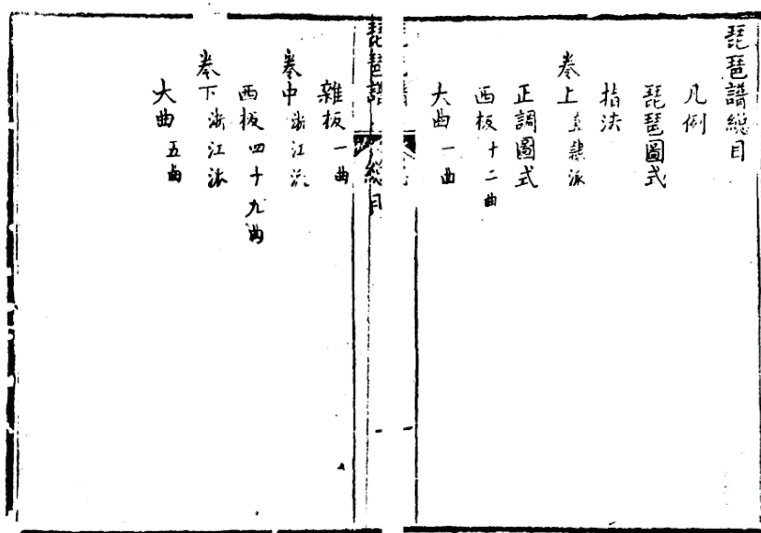 琵琶譜總目
凡例
琵琶圖式
指法
卷上 直隸派
正調圖式
西板十二曲
大曲一曲
琵琶譜 總目
雜板一曲
卷中 浙江派
西板四十九曲
卷下 浙江派
大曲五曲